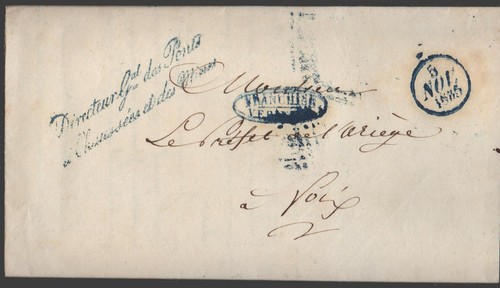 Directeur Gal des Ponts
et Chaussées et des Mines
Monsieur
FRANCHISE
Le Préfet de l'Ariège
à Foix
5
NOV.
1835